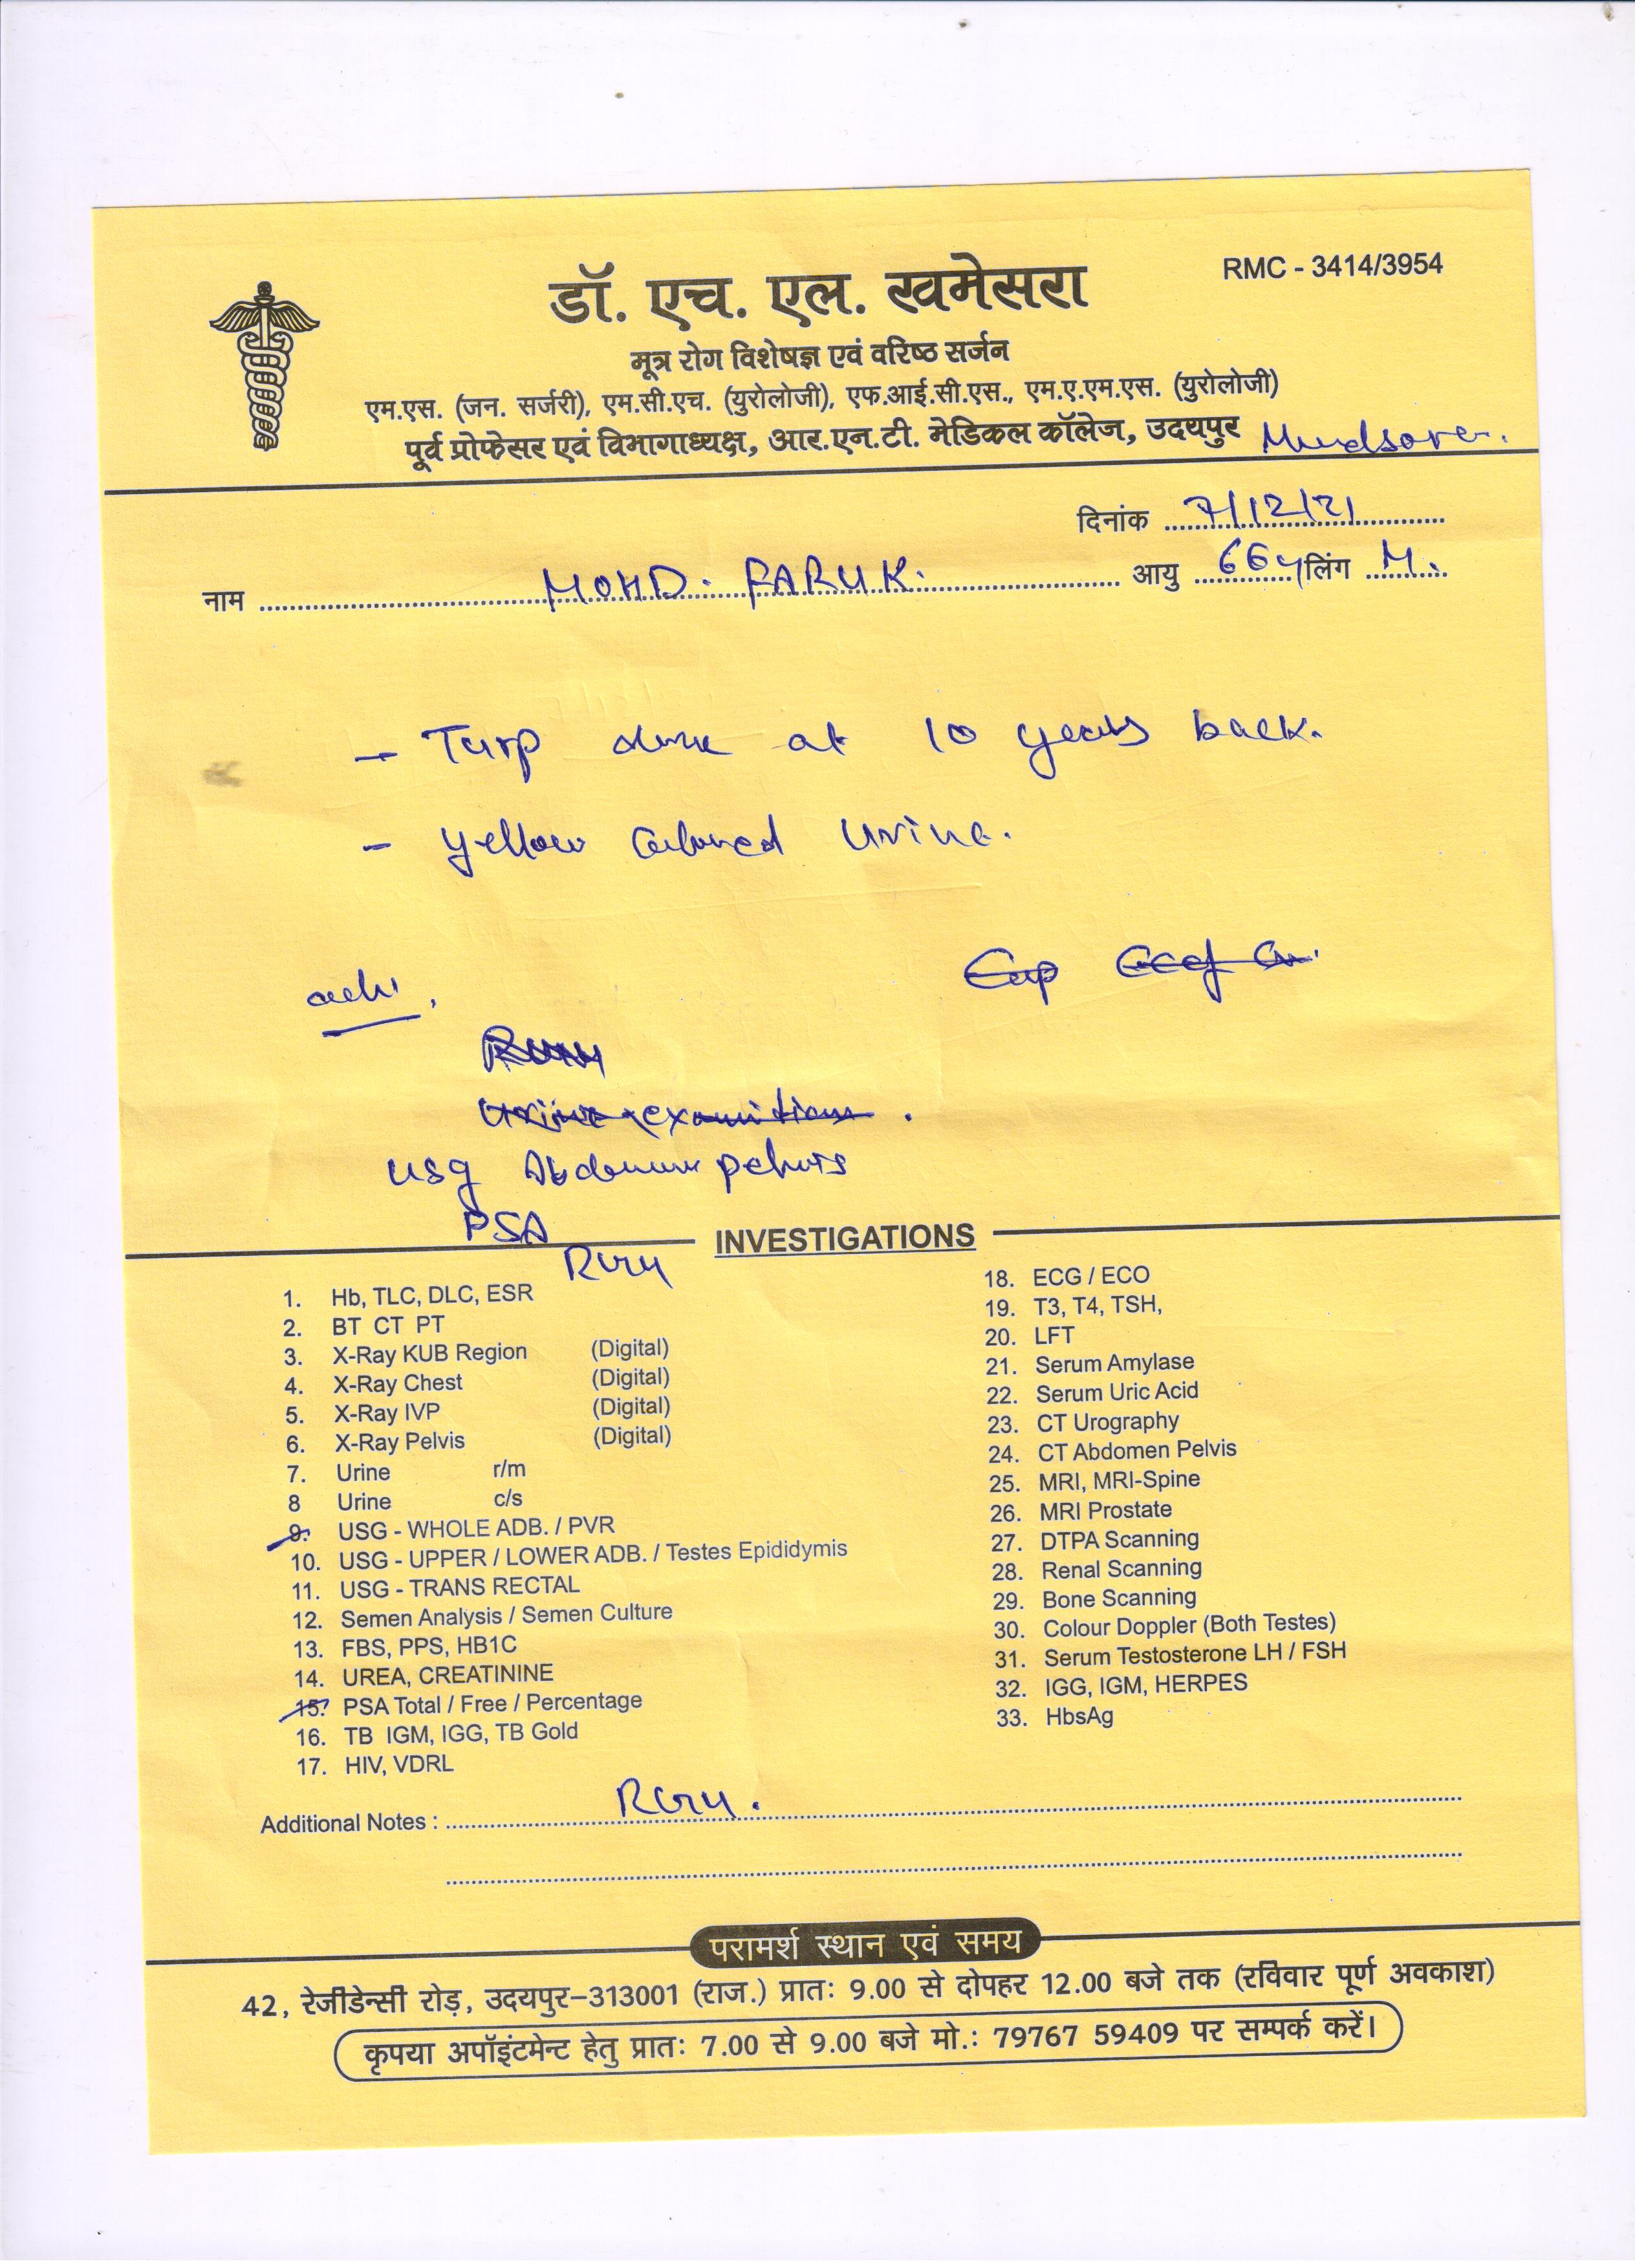 RMC - 3414/3954
डॉ. एच. एल. खमेसरा
मूत्र रोग विशेषज्ञ एवं वरिष्ठ सर्जन
एम.एस. (जन. सर्जरी), एम.सी.एच. (युरोलोजी), एफ.आई.सी.एस., एम.ए.एम.एस. (युरोलोजी)
पूर्व प्रोफेसर एवं विभागाध्यक्ष, आर.एन.टी. मेडिकल कॉलेज, उदयपुर
दिनांक 7/12/21
नाम MOHD. FARUK. आयु 66y लिंग M.
- Turp done at 10 years back.
- yellow coloured urine.
usg Abdomen pelvis
PSA
INVESTIGATIONS
RGU
1. Hb, TLC, DLC, ESR
2. BT CT PT
3. X-Ray KUB Region (Digital)
4. X-Ray Chest (Digital)
5. X-Ray IVP (Digital)
6. X-Ray Pelvis (Digital)
7. Urine r/m
8 Urine c/s
9. USG - WHOLE ADB. / PVR
10. USG - UPPER / LOWER ADB. / Testes Epididymis
11. USG - TRANS RECTAL
12. Semen Analysis / Semen Culture
13. FBS, PPS, HB1C
14. UREA, CREATININE
15. PSA Total / Free / Percentage
16. TB IGM, IGG, TB Gold
17. HIV, VDRL
18. ECG / ECO
19. T3, T4, TSH,
20. LFT
21. Serum Amylase
22. Serum Uric Acid
23. CT Urography
24. CT Abdomen Pelvis
25. MRI, MRI-Spine
26. MRI Prostate
27. DTPA Scanning
28. Renal Scanning
29. Bone Scanning
30. Colour Doppler (Both Testes)
31. Serum Testosterone LH / FSH
32. IGG, IGM, HERPES
33. HbsAg
Additional Notes : RGU.
परामर्श स्थान एवं समय
42, रेजीडेन्सी रोड़, उदयपुर-313001 (राज.) प्रातः 9.00 से दोपहर 12.00 बजे तक (रविवार पूर्ण अवकाश)
कृपया अपॉइंटमेन्ट हेतु प्रातः 7.00 से 9.00 बजे मो.: 79767 59409 पर सम्पर्क करें।